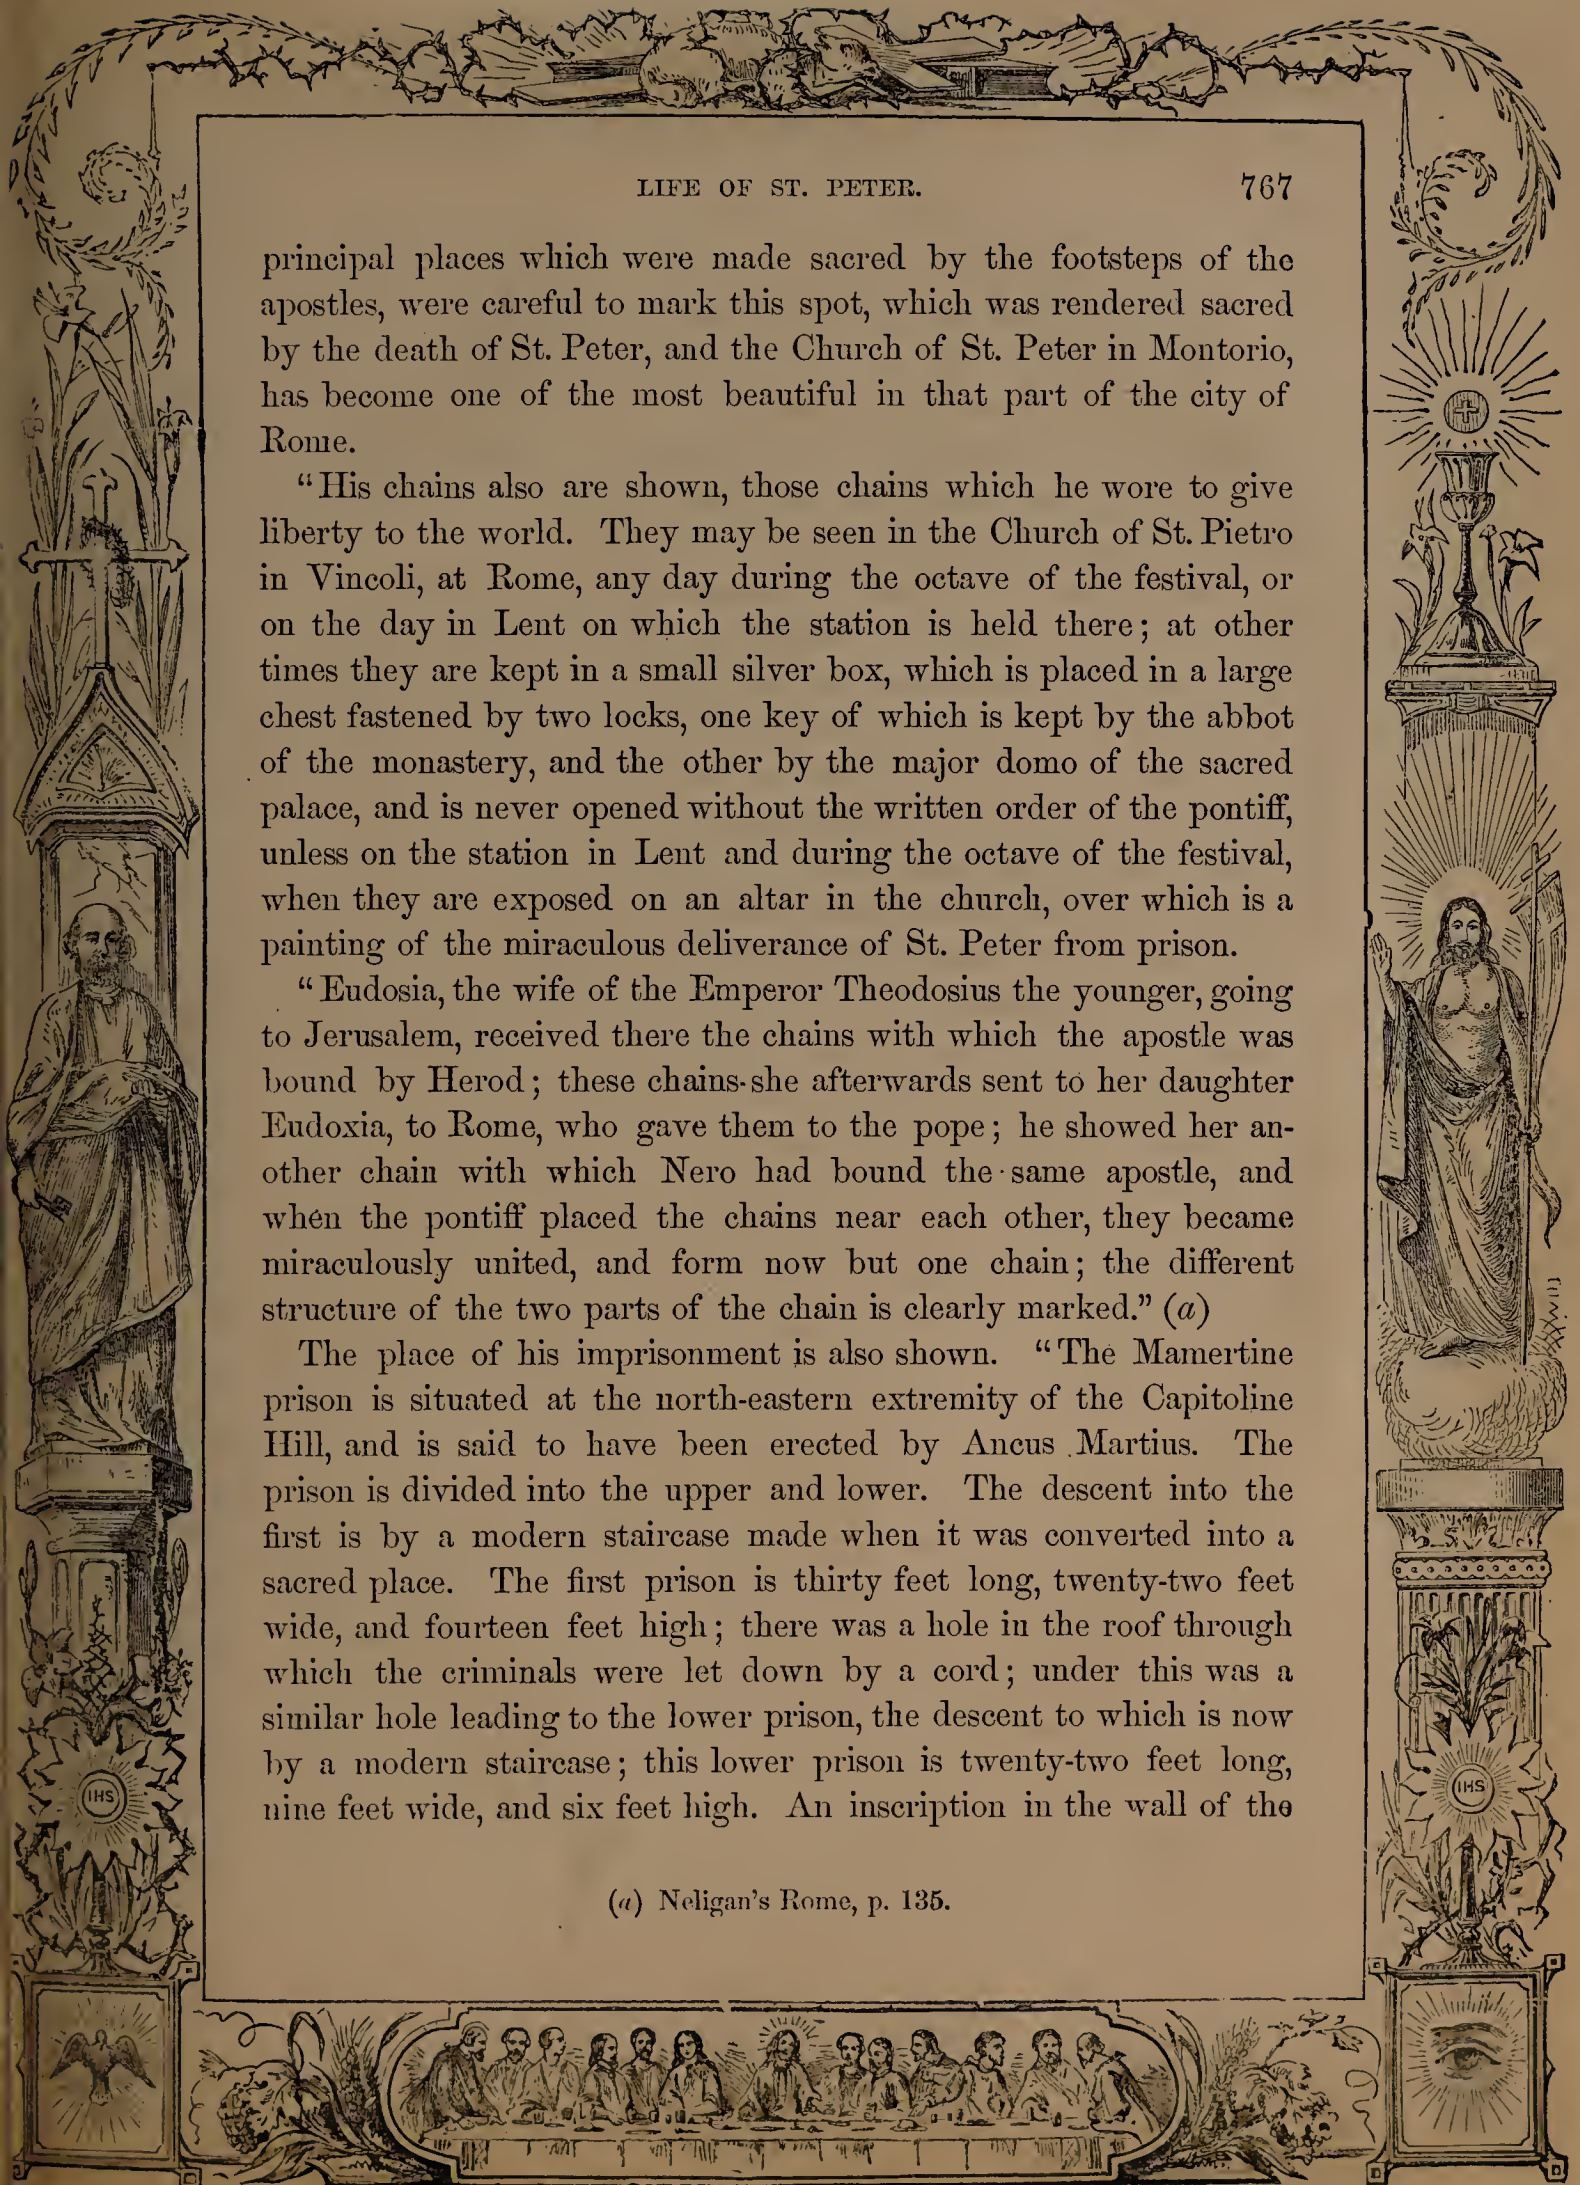 LIFE OF ST. PETER. 767
principal places which were made sacred by the footsteps of the
apostles, were careful to mark this spot, which was rendered sacred
by the death of St. Peter, and the Church of St. Peter in Montorio,
has become one of the most beautiful in that part of the city of
Rome.
“His chains also are shown, those chains which he wore to give
liberty to the world. They may be seen in the Church of St. Pietro
in Vincoli, at Rome, any day during the octave of the festival, or
on the day in Lent on which the station is held there; at other
times they are kept in a small silver box, which is placed in a large
chest fastened by two locks, one key of which is kept by the abbot
of the monastery, and the other by the major domo of the sacred
palace, and is never opened without the written order of the pontiff,
unless on the station in Lent and during the octave of the festival,
when they are exposed on an altar in the church, over which is a
painting of the miraculous deliverance of St. Peter from prison.
“Eudosia, the wife of the Emperor Theodosius the younger, going
to Jerusalem, received there the chains with which the apostle was
bound by Herod; these chains she afterwards sent to her daughter
Eudoxia, to Rome, who gave them to the pope; he showed her an-
other chain with which Nero had bound the same apostle, and
when the pontiff placed the chains near each other, they became
miraculously united, and form now but one chain; the different
structure of the two parts of the chain is clearly marked.” (a)
The place of his imprisonment is also shown. “The Mamertine
prison is situated at the north-eastern extremity of the Capitoline
Hill, and is said to have been erected by Ancus Martius. The
prison is divided into the upper and lower. The descent into the
first is by a modern staircase made when it was converted into a
sacred place. The first prison is thirty feet long, twenty-two feet
wide, and fourteen feet high; there was a hole in the roof through
which the criminals were let down by a cord; under this was a
similar hole leading to the lower prison, the descent to which is now
by a modern staircase; this lower prison is twenty-two feet long,
nine feet wide, and six feet high. An inscription in the wall of the
(a) Neligan’s Rome, p. 135.
IHS
IHS